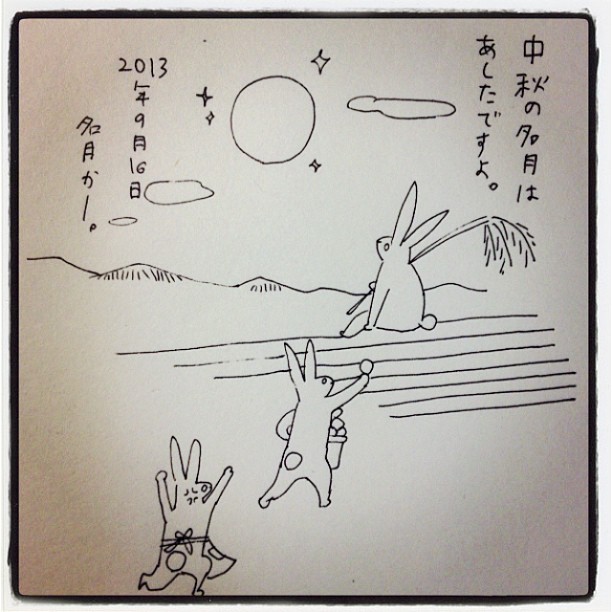 中秋の名月は
あしたですよ。
2013
年9月16日
名月かー。